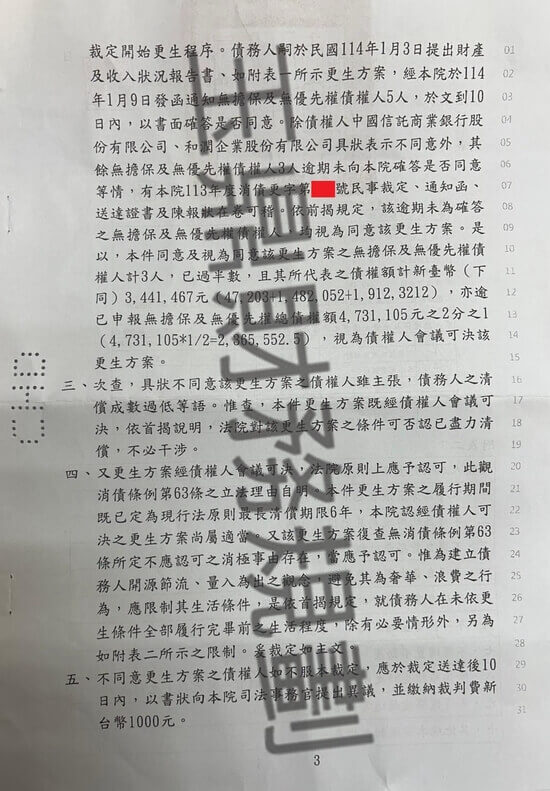 裁定開始更生程序。債務人嗣於民國114年1月3日提出財產 01
及收入狀況報告書、如附表一所示更生方案，經本院於114 02
年1月9日發函通知無擔保及無優先權債權人5人，於文到10 03
日內，以書面確答是否同意。除債權人中國信託商業銀行股 04
份有限公司、和潤企業股份有限公司具狀表示不同意外，其 05
餘無擔保及無優先權債權人3人逾期未向本院確答是否同意 06
等情，有本院113年度消債更字第 號民事裁定、通知函、 07
送達證書及陳報狀在卷可稽。依前揭規定，該逾期未為確答 08
之無擔保及無優先權債權人，均視為同意該更生方案。是 09
以，本件同意及視為同意該更生方案之無擔保及無優先權債 10
權人計3人，已過半數，且其所代表之債權額計新臺幣（下 11
同）3,441,467元（47,203+1,482,052+1,912,3212），亦逾 12
已申報無擔保及無優先權總債權額4,731,105元之2分之1 13
（4,731,105*1/2=2,365,552.5），視為債權人會議可決該 14
更生方案。 15
三、次查，具狀不同意該更生方案之債權人雖主張，債務人之清 16
償成數過低等語。惟查，本件更生方案既經債權人會議可 17
決，依首揭說明，法院對該更生方案之條件可否認已盡力清 18
償，不必干涉。 19
四、又更生方案經債權人會議可決，法院原則上應予認可，此觀 20
消債條例第63條之立法理由自明。本件更生方案之履行期間 21
既已定為現行法原則最長清償期限6年，本院認經債權人可 22
決之更生方案尚屬適當。又該更生方案復查無消債條例第63 23
條所定不應認可之消極事由存在，當應予認可。惟為建立債 24
務人開源節流、量入為出之觀念，避免其為奢華、浪費之行 25
為，應限制其生活條件，是依首揭規定，就債務人在未依更 26
生條件全部履行完畢前之生活程度，除有必要情形外，另為 27
如附表二所示之限制。爰裁定如主文。 28
五、不同意更生方案之債權人如不服本裁定，應於裁定送達後10 29
日內，以書狀向本院司法事務官提出異議，並繳納裁判費新 30
台幣1000元。 31
3